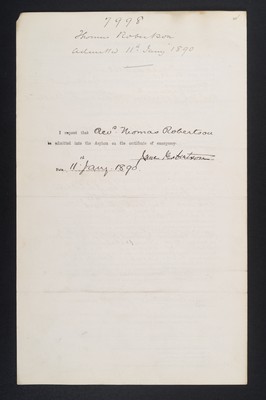 7998
Thomas Robertson
Admitted 11th Jany 1890
I request that Revd Thomas Robertson
be admitted into the Asylum on the certificate of emergency
Robertson
11th Jany 1890